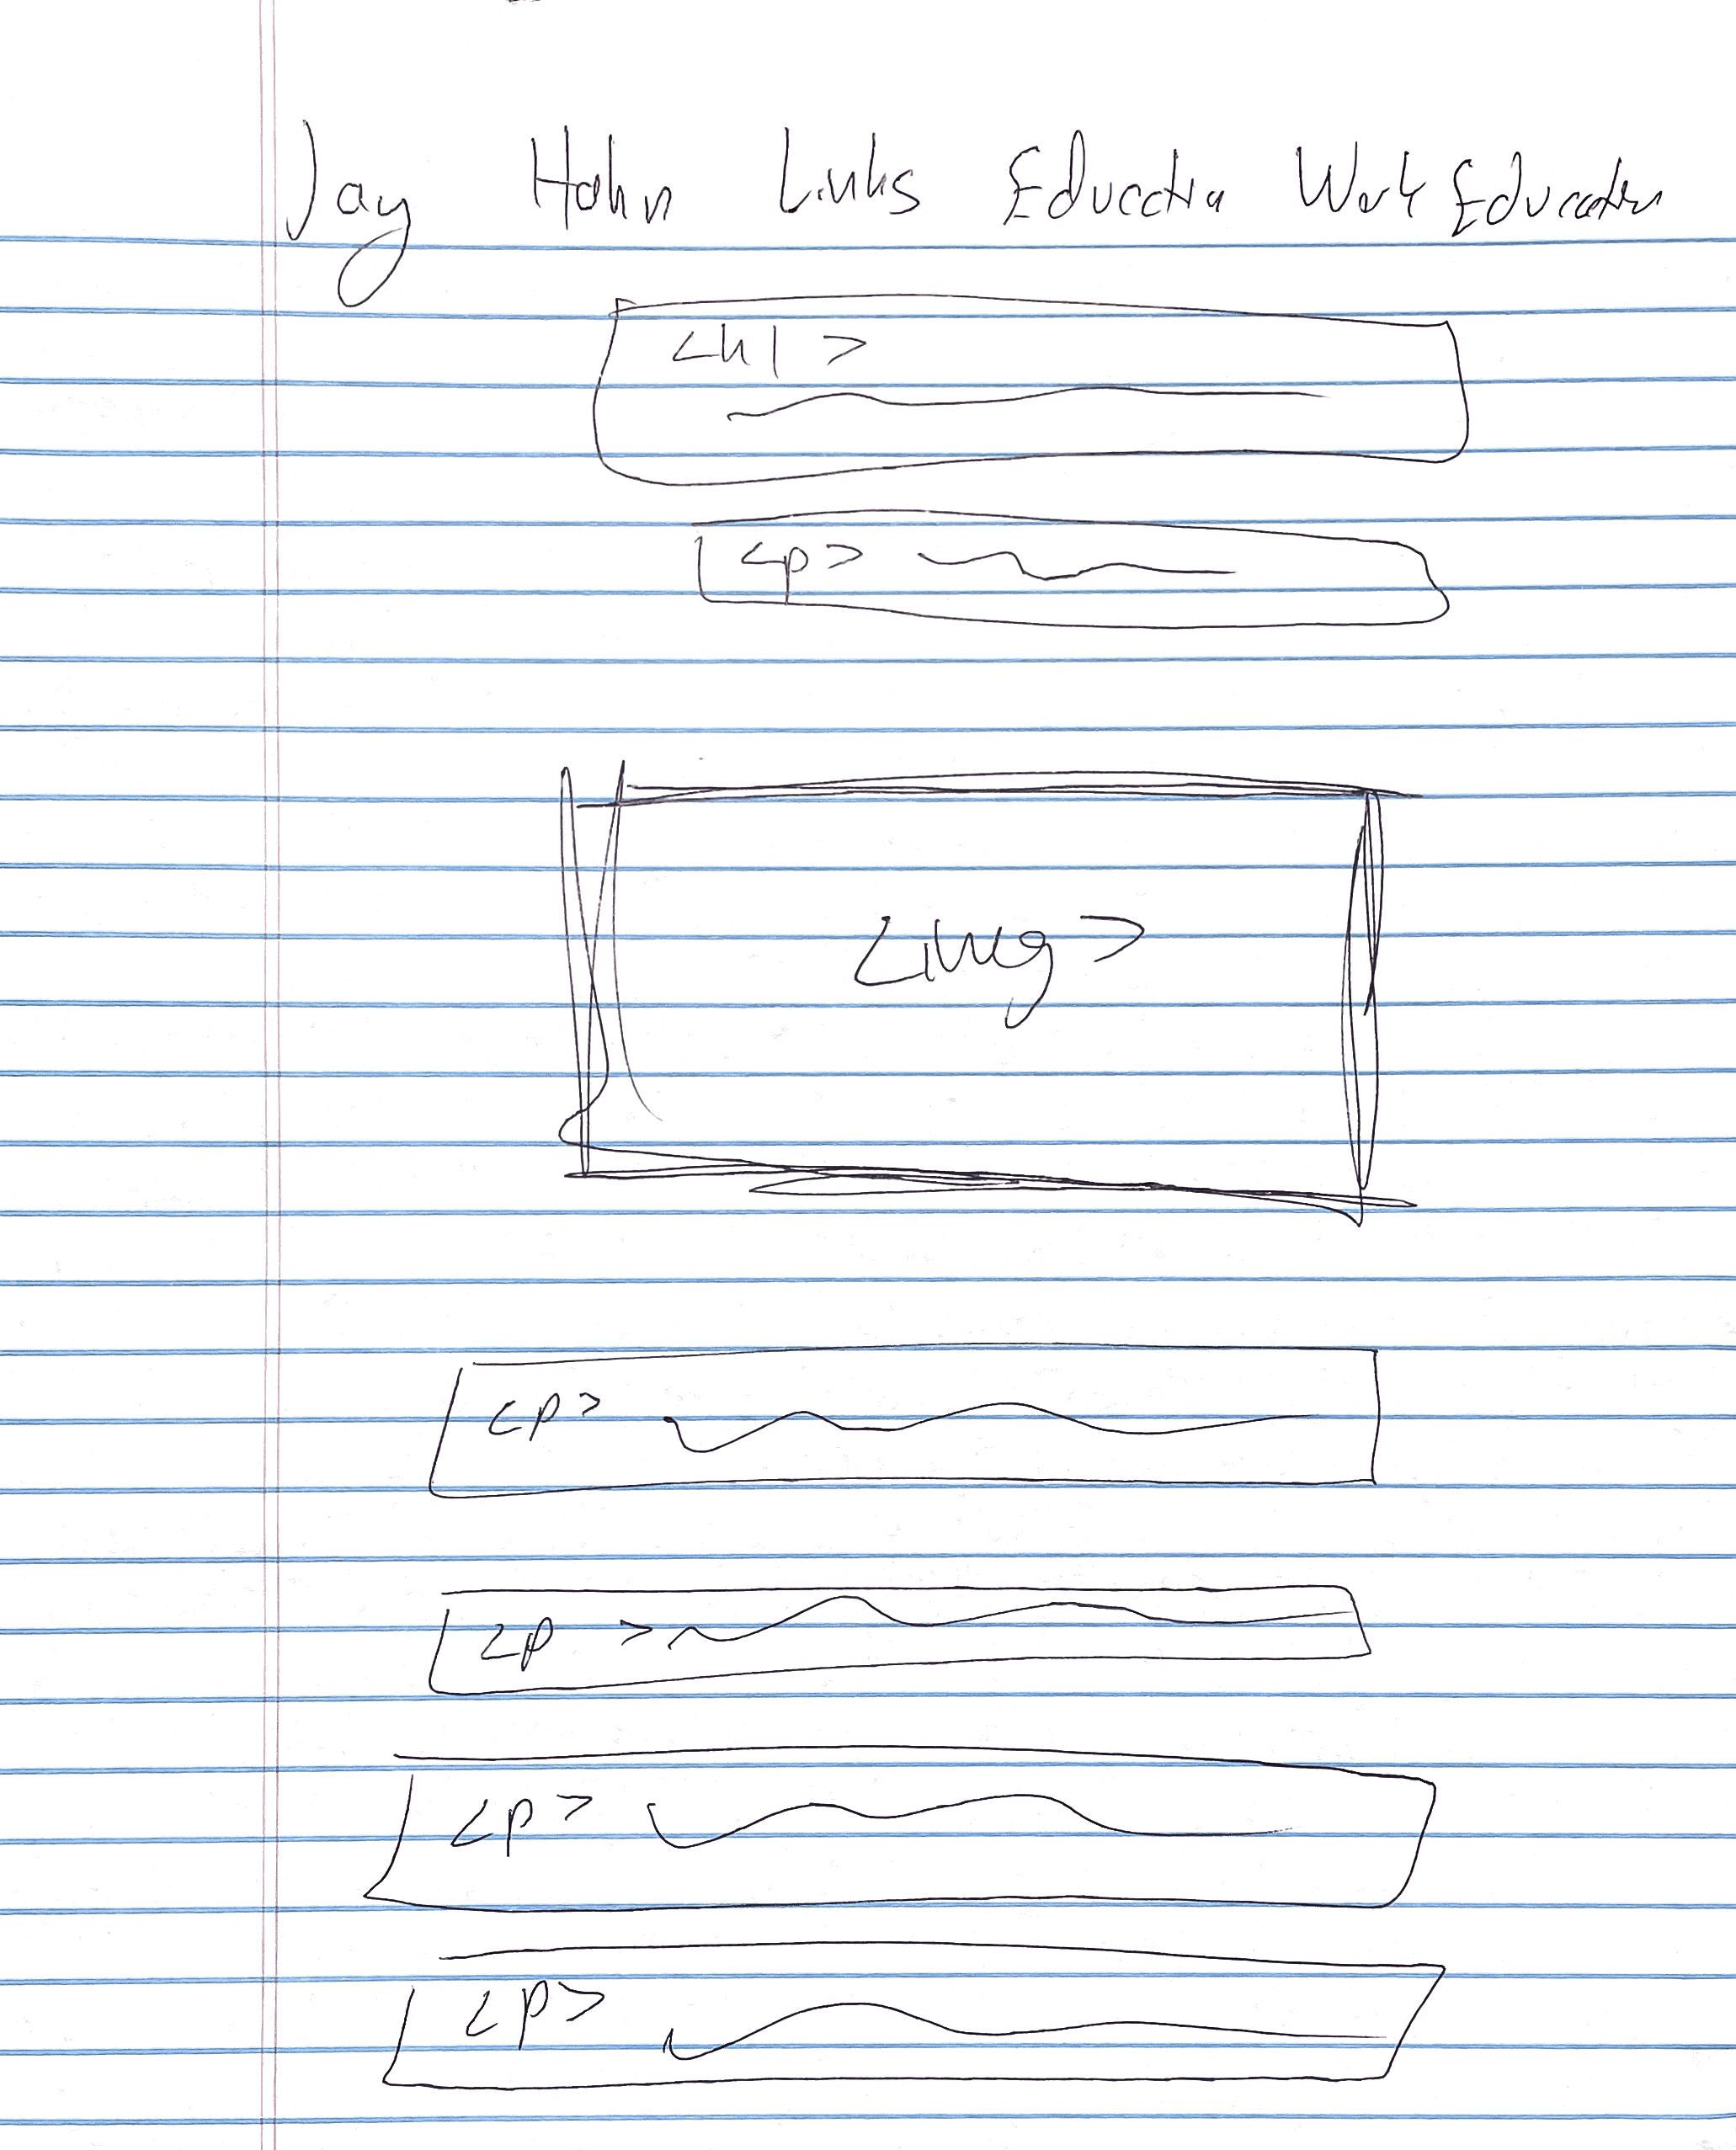 Jay Hahn Links Education Work Education
<h1>
<p>
<img>
<p>
<p >
<p>
<p>